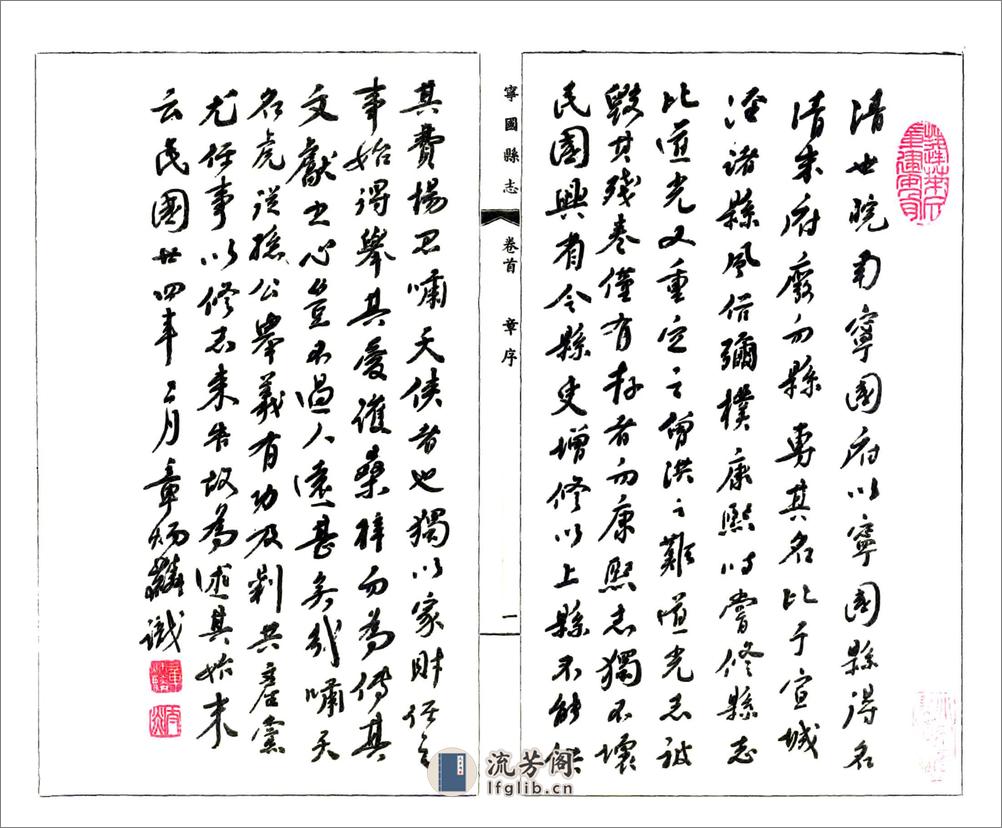 清世皖南寧國府以寧國縣得名
清末府廢而縣專其名比于宣城
涇諸縣風俗彌樸康熙時嘗修縣志
比道光又重定之曾洪之難道光志被
毀其殘卷僅有存者而康熙志獨不壞
民國興有令縣更增修以上縣不能供
寧國縣志 卷首 章序 一
其費楊君嘯天俠者也獨以家財任之
事始得舉其愛護桑梓而為傳其
文獻之心豈不過人遠甚矣哉嘯天
名虎從孫公舉義有功及剿共產黨
尤任事以修志來告故為述其始末
云民國廿四年三月章炳麟識
流芳阁
lfglib.cn